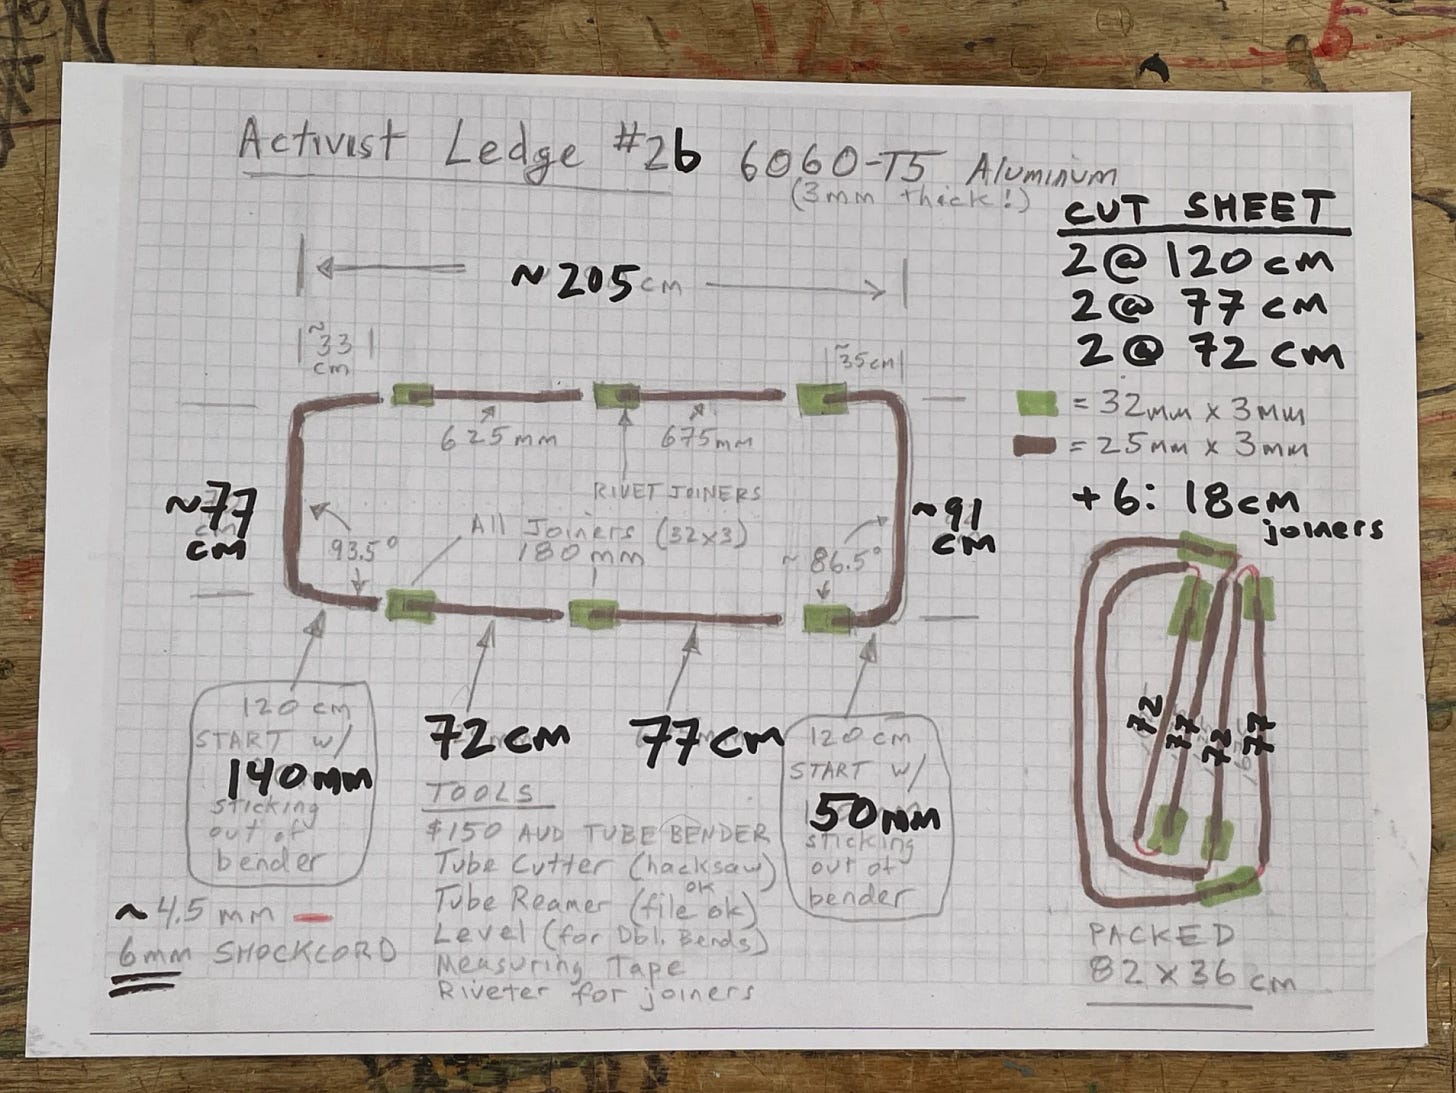 Activist Ledge #2b 6060-T5 Aluminum
(3mm thick!)
CUT SHEET
2 @ 120 cm
2 @ 77 cm
2 @ 72 cm
= 32mm x 3mm
= 25mm x 3mm
+ 6: 18cm
joiners
~ 205cm
~33
cm
~35cm
625mm
675mm
RIVET JOINERS
All Joiners (32x3)
180mm
~77
cm
93.5°
~ 86.5°
~91
cm
120 cm
START w/
140mm
sticking
out of
bender
72cm
77cm
120 cm
START w/
50mm
sticking
out of
bender
TOOLS
$150 AUD TUBE BENDER
Tube Cutter (hacksaw)
ok
Tube Reamer (file ok)
Level (for Dbl. Bends)
Measuring Tape
Riveter for joiners
~ 4.5 mm
6mm SHOCKCORD
72
77
72
77
PACKED
82 x 36 cm